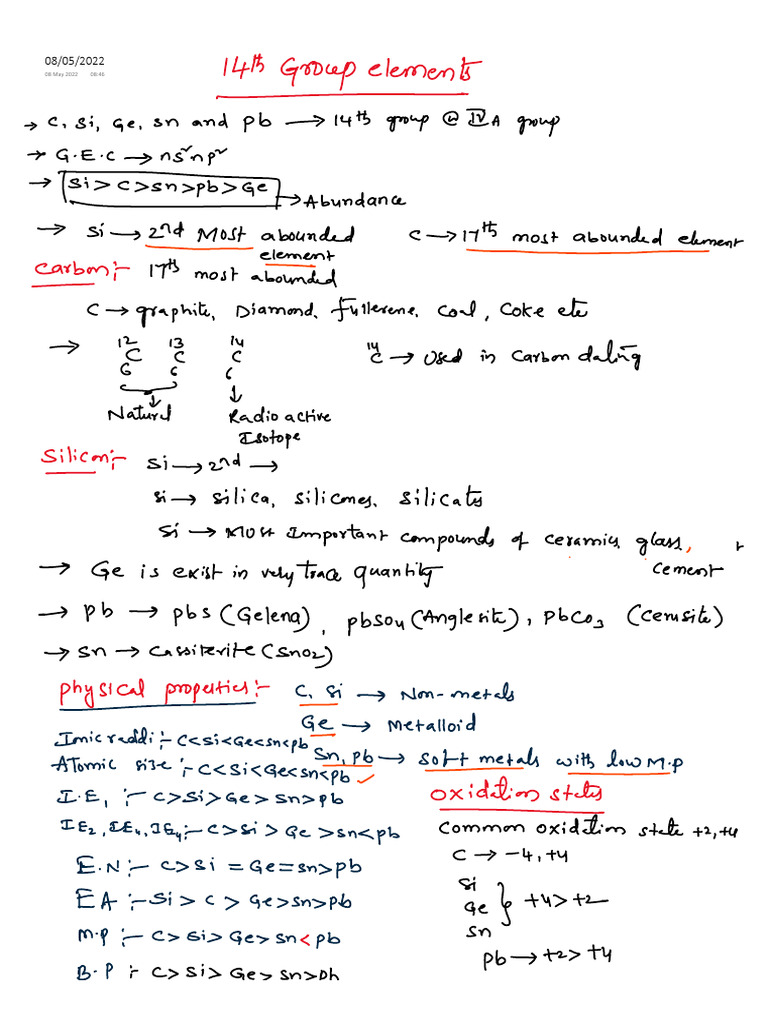 08/05/2022
08 May 2022 08:46
14th Group elements
→ C, Si, Ge, Sn and Pb → 14th group @ IV A group
→ G.E.C → ns²np²
→ Si > C > Sn > Pb > Ge → Abundance
→ Si → 2nd Most abounded element
C → 17th most abounded element
Carbon:- 17th most abounded
C → graphite, Diamond, fullerene, Coal, Coke etc
→ ¹²C₆ ¹³C₆ ¹⁴C₆
¹⁴C → Used in Carbon dating
Natural
Radio active
Isotope
Silicon:- Si → 2nd →
Si → Silica, Silicones, Silicates
Si → Most Important compounds of ceramics, glass, +
cement
→ Ge is exist in very trace quantity
→ Pb → pbs (Gelena), pbso4 (Anglesite), PbCO3 (Cerusite)
→ Sn → Cassiterite (SnO2)
Physical properties:- C, Si → Non-metals
Ge → Metalloid
Ionic raddi:- C<Si<Ge<Sn<Pb
Sn, Pb → Soft metals with low M.P
Atomic size:- C<Si<Ge<Sn<Pb ✓
I.E₁ :- C>Si>Ge>Sn>Pb
IE₂, IE₄, IE₄:- C>Si>Ge>Sn<Pb
E.N:- C>Si=Ge=Sn>Pb
EA:- Si>C>Ge>Sn>Pb
M.P:- C>Si>Ge>Sn<Pb
B.P:- C>Si>Ge>Sn>Pb
Oxidation states
Common oxidation state +2,+4
C → -4,+4
Si
Ge } +4>+2
Sn
Pb → +2>+4